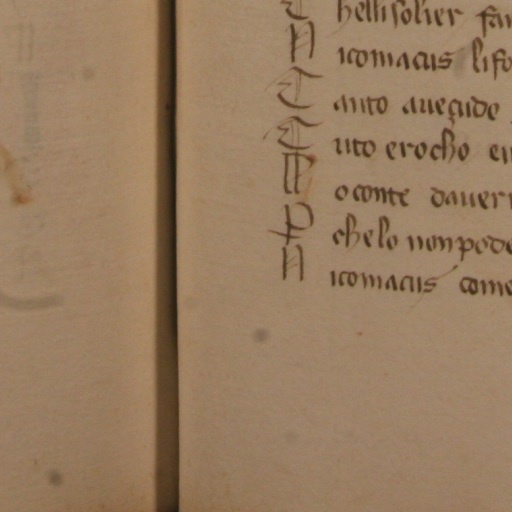 C hellisolier fan
N icomacus lifo
T anto aueçude
T uto erocho en
M oconte dauer
P chelo non pode
N icomacus come